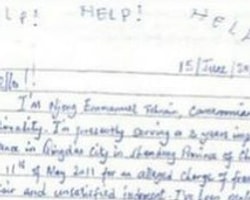 LP! HELP! HEL
15/June/20
Hello!!
I'm Njong Emmanuel Tohnain, Cameroonian
nationality. I'm presently serving a 3 years in
ance in Qingdao City in Shandong Province of
11th of May 2011 for an alleged charge of fra
air and unsatisfied I've been